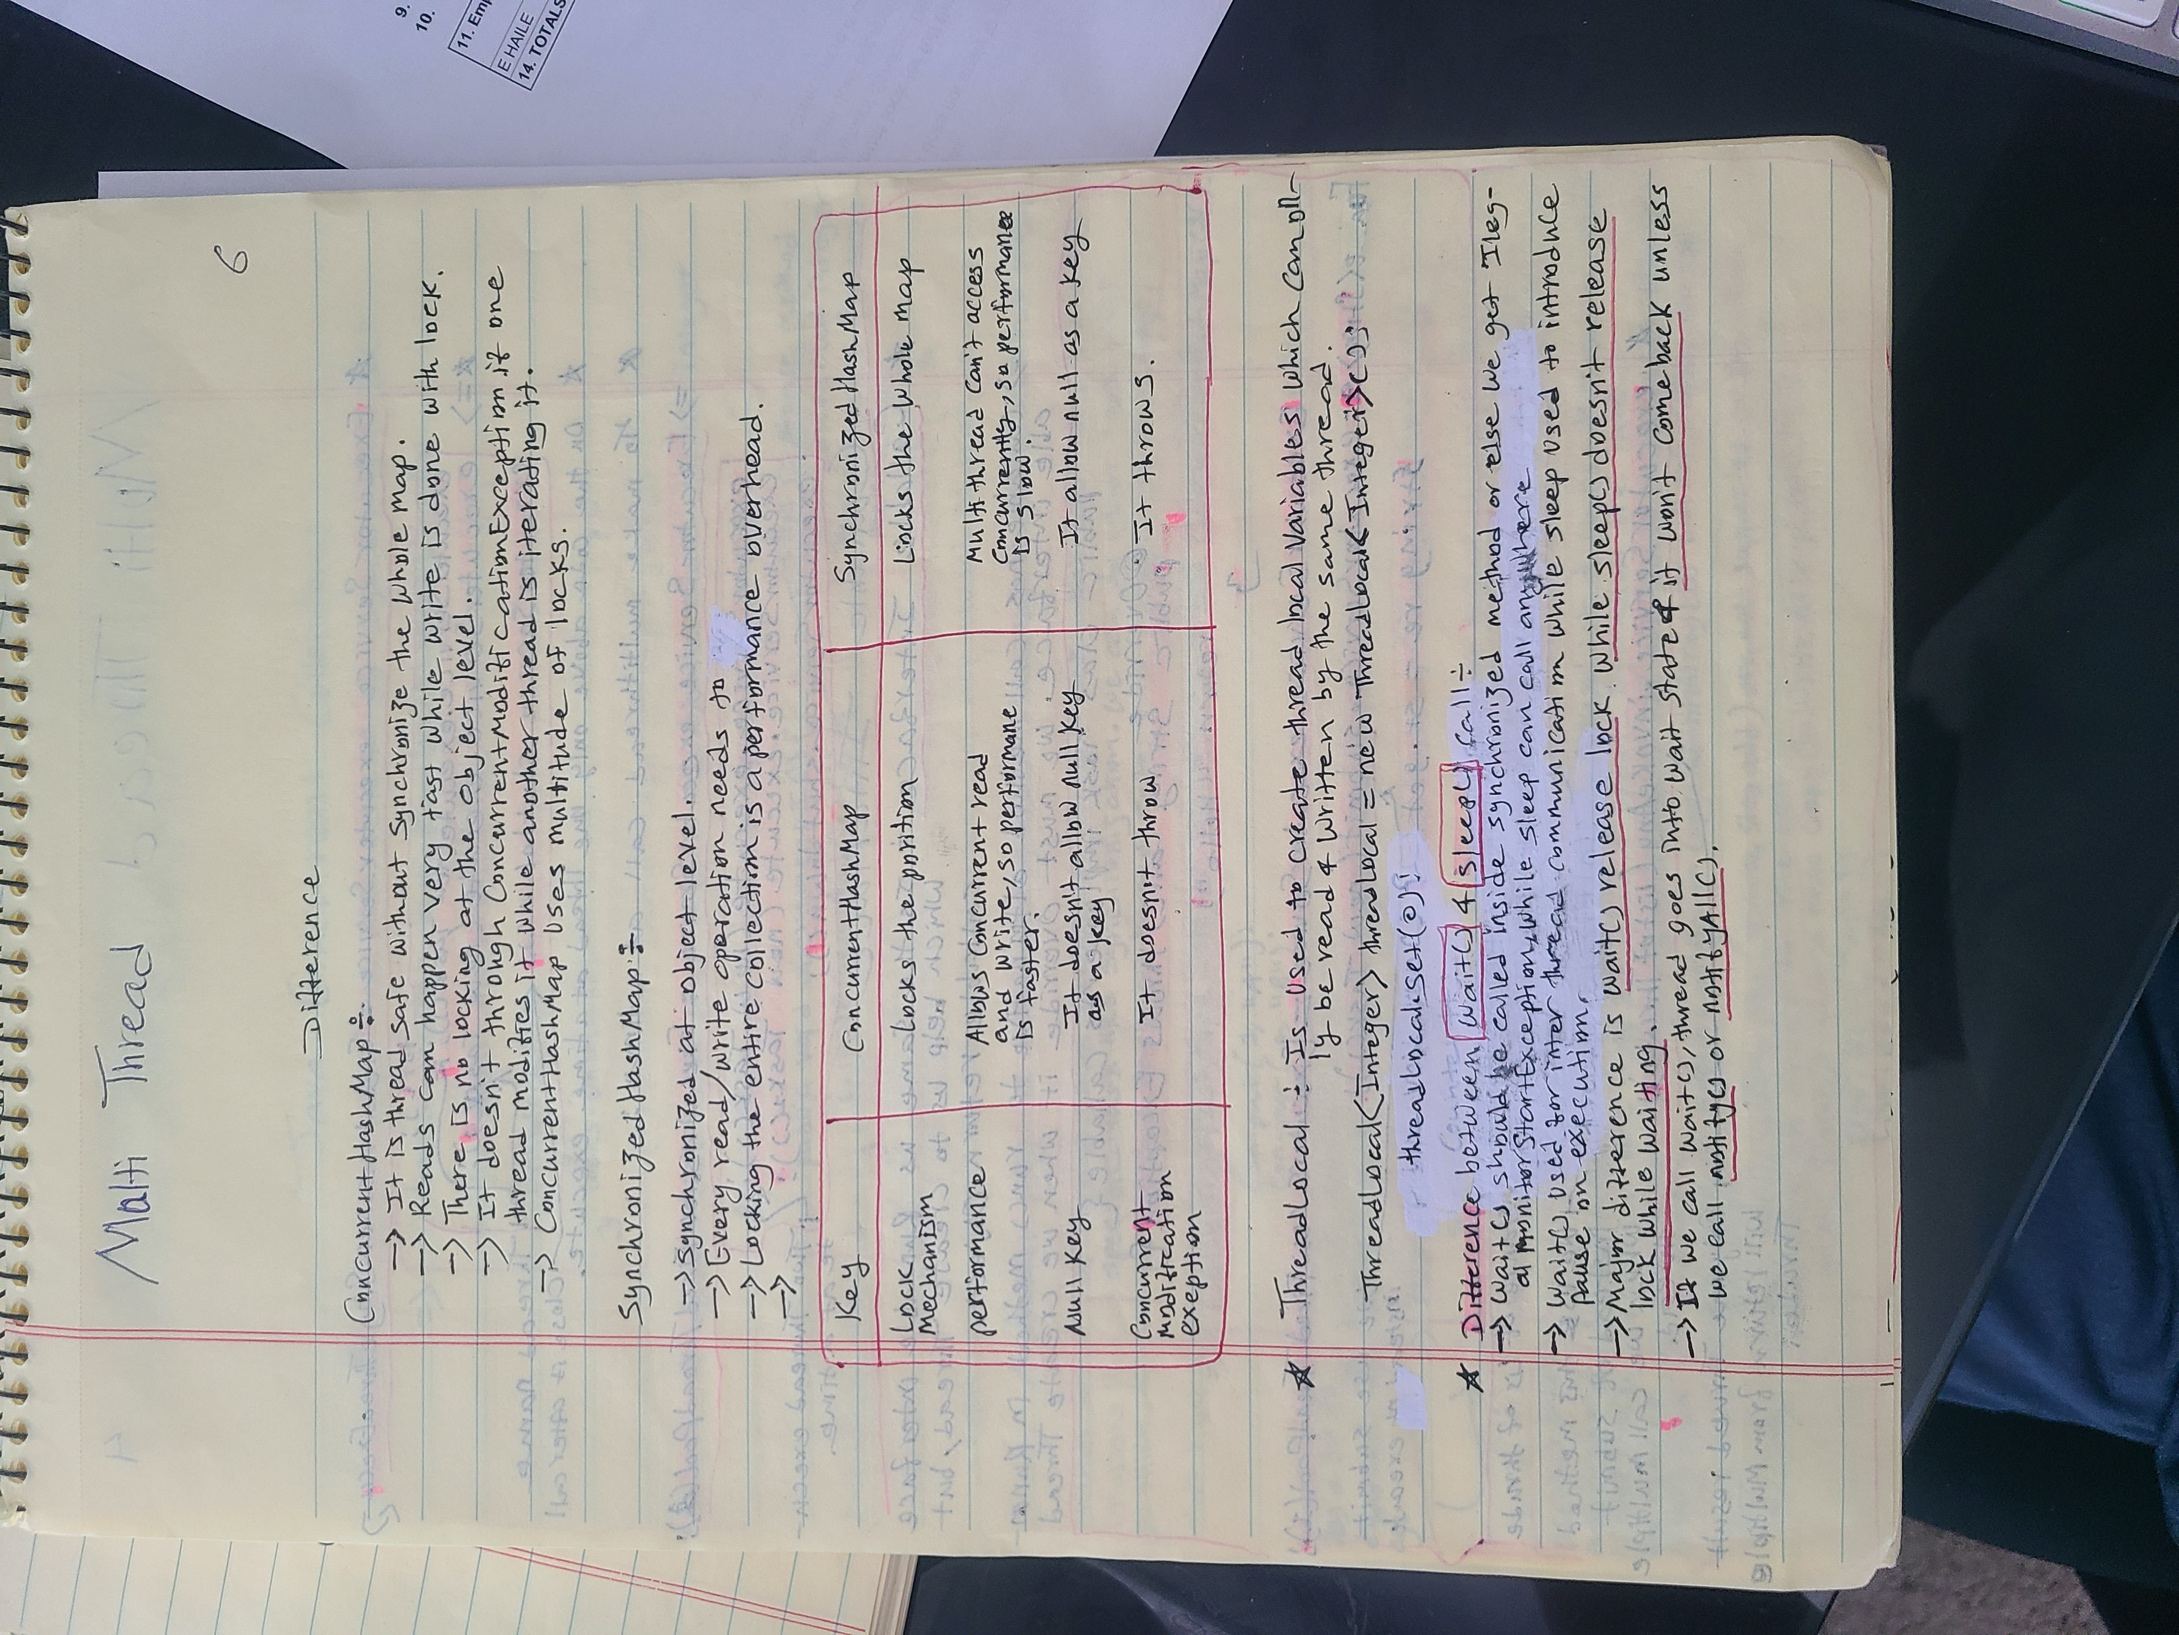 9.
10.
11. Emp
E HAILE
14. TOTALS
6
Malti Thread
Difference
ConcurrentHashMap÷
→ It is thread safe without synchronize the whole map.
→ Reads can happen very fast while write is done with lock.
→ There is no locking at the object level.
→ It doesn't through ConcurrentModificationException if one
thread modifies it while another thread is iterading it.
→ ConcurrentHashMap uses multitude of locks.
SynchronizedHashMap÷
→ Synchronized at object level.
→ Every read/write operation needs to
→ Locking the entire collection is a performance overhead.
→
Key ConcurrentHashMap SynchronizedHashMap
Lock Mechanism Locks the porition Locks the whole map
performance Allows Concurrent read and write, so performane is faster. Multithread can't access Concurrently, so performane is slow.
Null Key It doesn't allow null key as a key It allow null as a key
Concurrent modification exeption It doesn't throw It throws.
★ ThreadLocal ÷ Is used to create thread local variables which can oll-
ly be read & written by the same thread.
ThreadLocal<Integer> threadLocal = new ThreadLocal<Integer>();
threadLocal.set(0);
★ Difference between wait() & sleep() call÷
→ wait() should be called inside synchronized method or else we get Ileg-
al MonitorStartException, while sleep can call anywhere
→ wait() used for inter thread communication while sleep used to introduce
pause on execution.
→ Major difference is wait() release lock while sleep() doesn't release
lock while waiting.
→ If we call wait(), thread goes into wait state & it won't comeback unless
we call notity() or notifyAll().